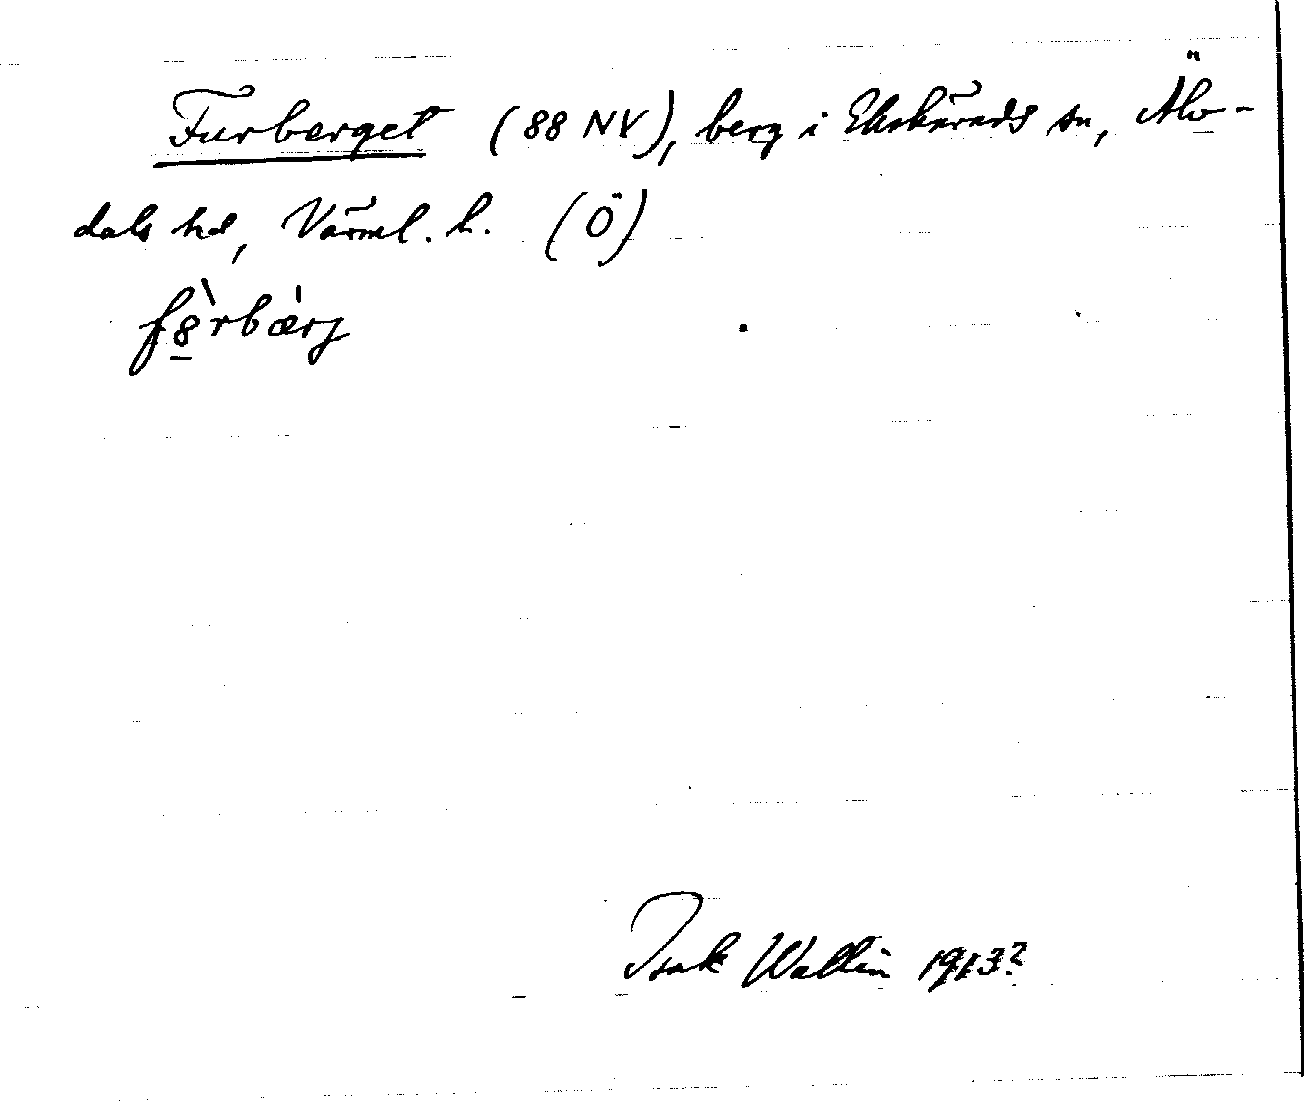 Furberget (88 NV), berg i Ekshärads sn, Älv-
dals hd, Värml. l. (Ö)
fȣ̀rbærj
Isak Wallin 1913?